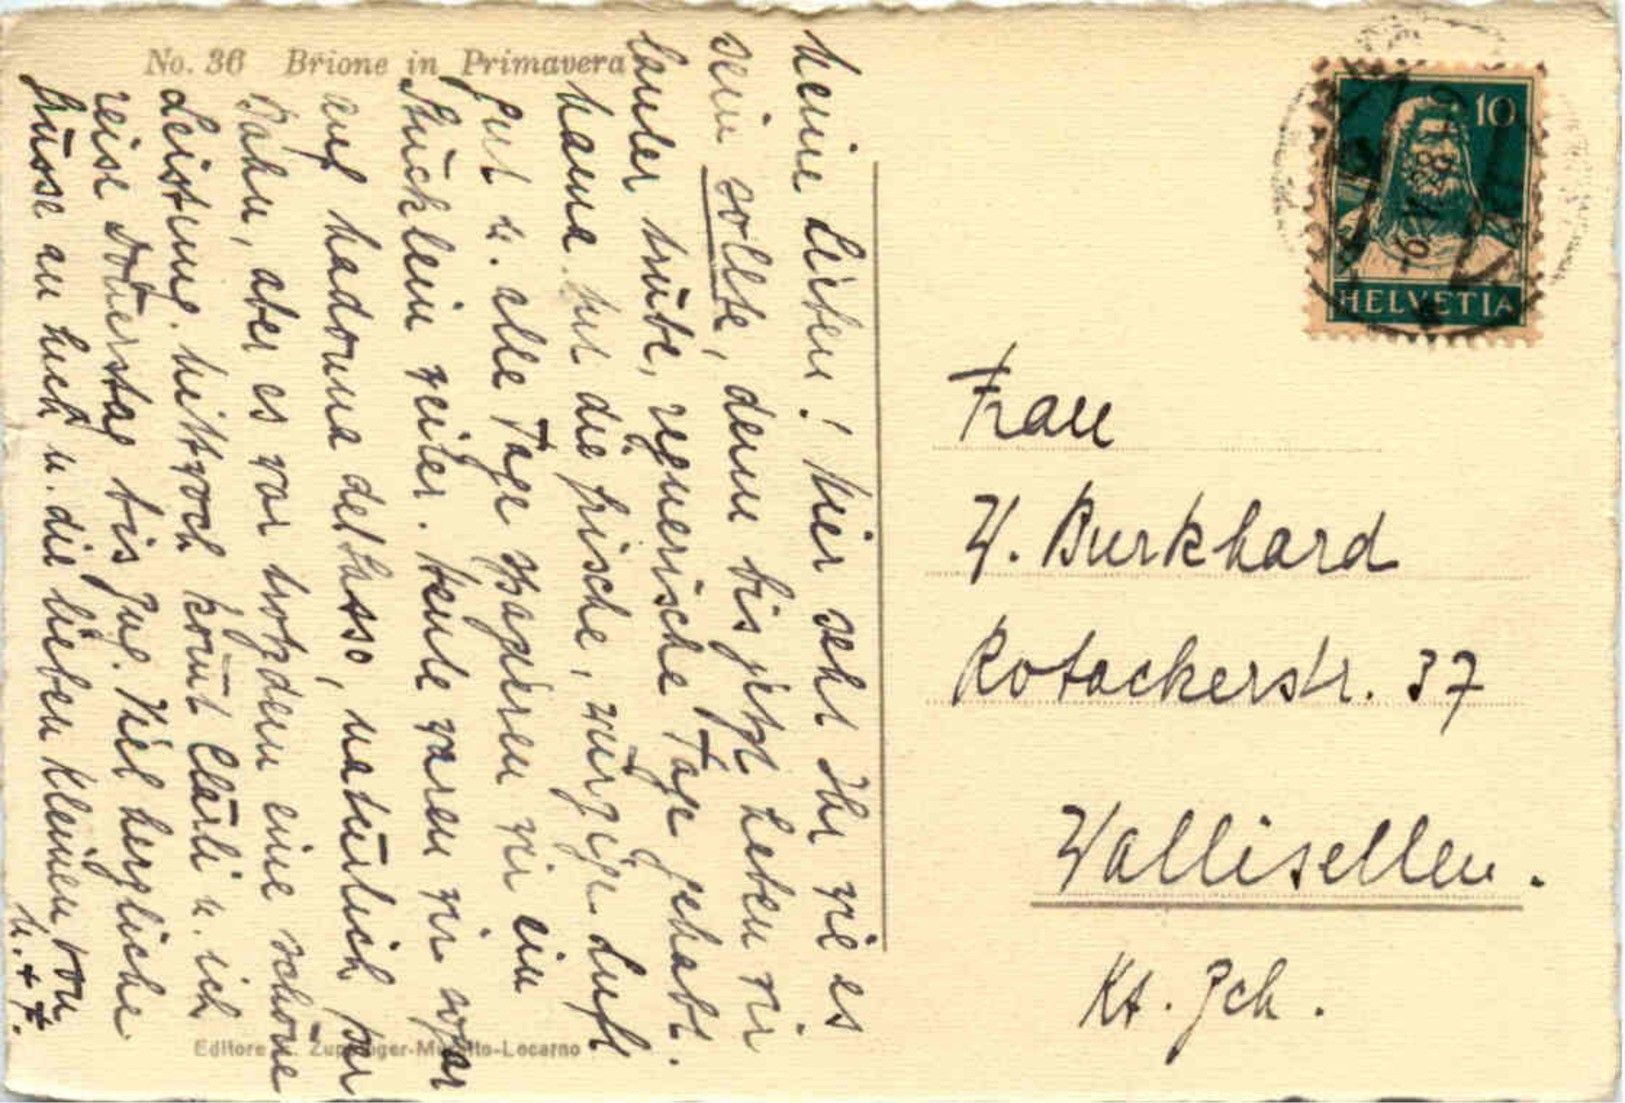 No. 36 Brione in Primavera
Meine Lieben! Hier seht Ihr wie es
sein sollte, denn bis jetzt haben wir
lauter trübe, regnerische Tage gehabt.
Mama tut die frische, würzige Luft
gut u. alle Tage spazieren wir ein
Stücklein weiter. Heute waren wir sogar
auf Madonna del Sasso, natürlich per
Bahn, aber es war trotzdem eine schöne
Leistung. Mittwoch kom̄t Clärli u. ich
reise Don̄erstag bis Zug. Viel herzliche
Küsse an Euch u. die lieben Kleinen von
M. + F.
Editore Zuppinger-Muralto-Locarno
10
HELVETIA
Frau
W. Burkhard
Rotackerstr. 37
Wallisellen.
Kt. Zch.